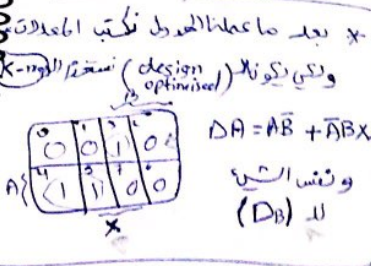 * بعد ما عملنا الجدول نكتب المعادلات
ولكي يكونلا (design optimised) نستخدم الـ K-map
B
0 1 3 2
0 0 1 0
A{ 4 5 7 6
1 1 0 0
X
DA = AB̅ + A̅BX
ونفس الشيء
لـ (DB)